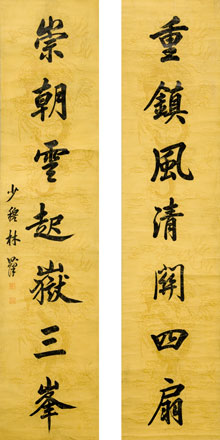 重鎮風清關四扇
崇朝雲起嶽三峯
少穆林則徐